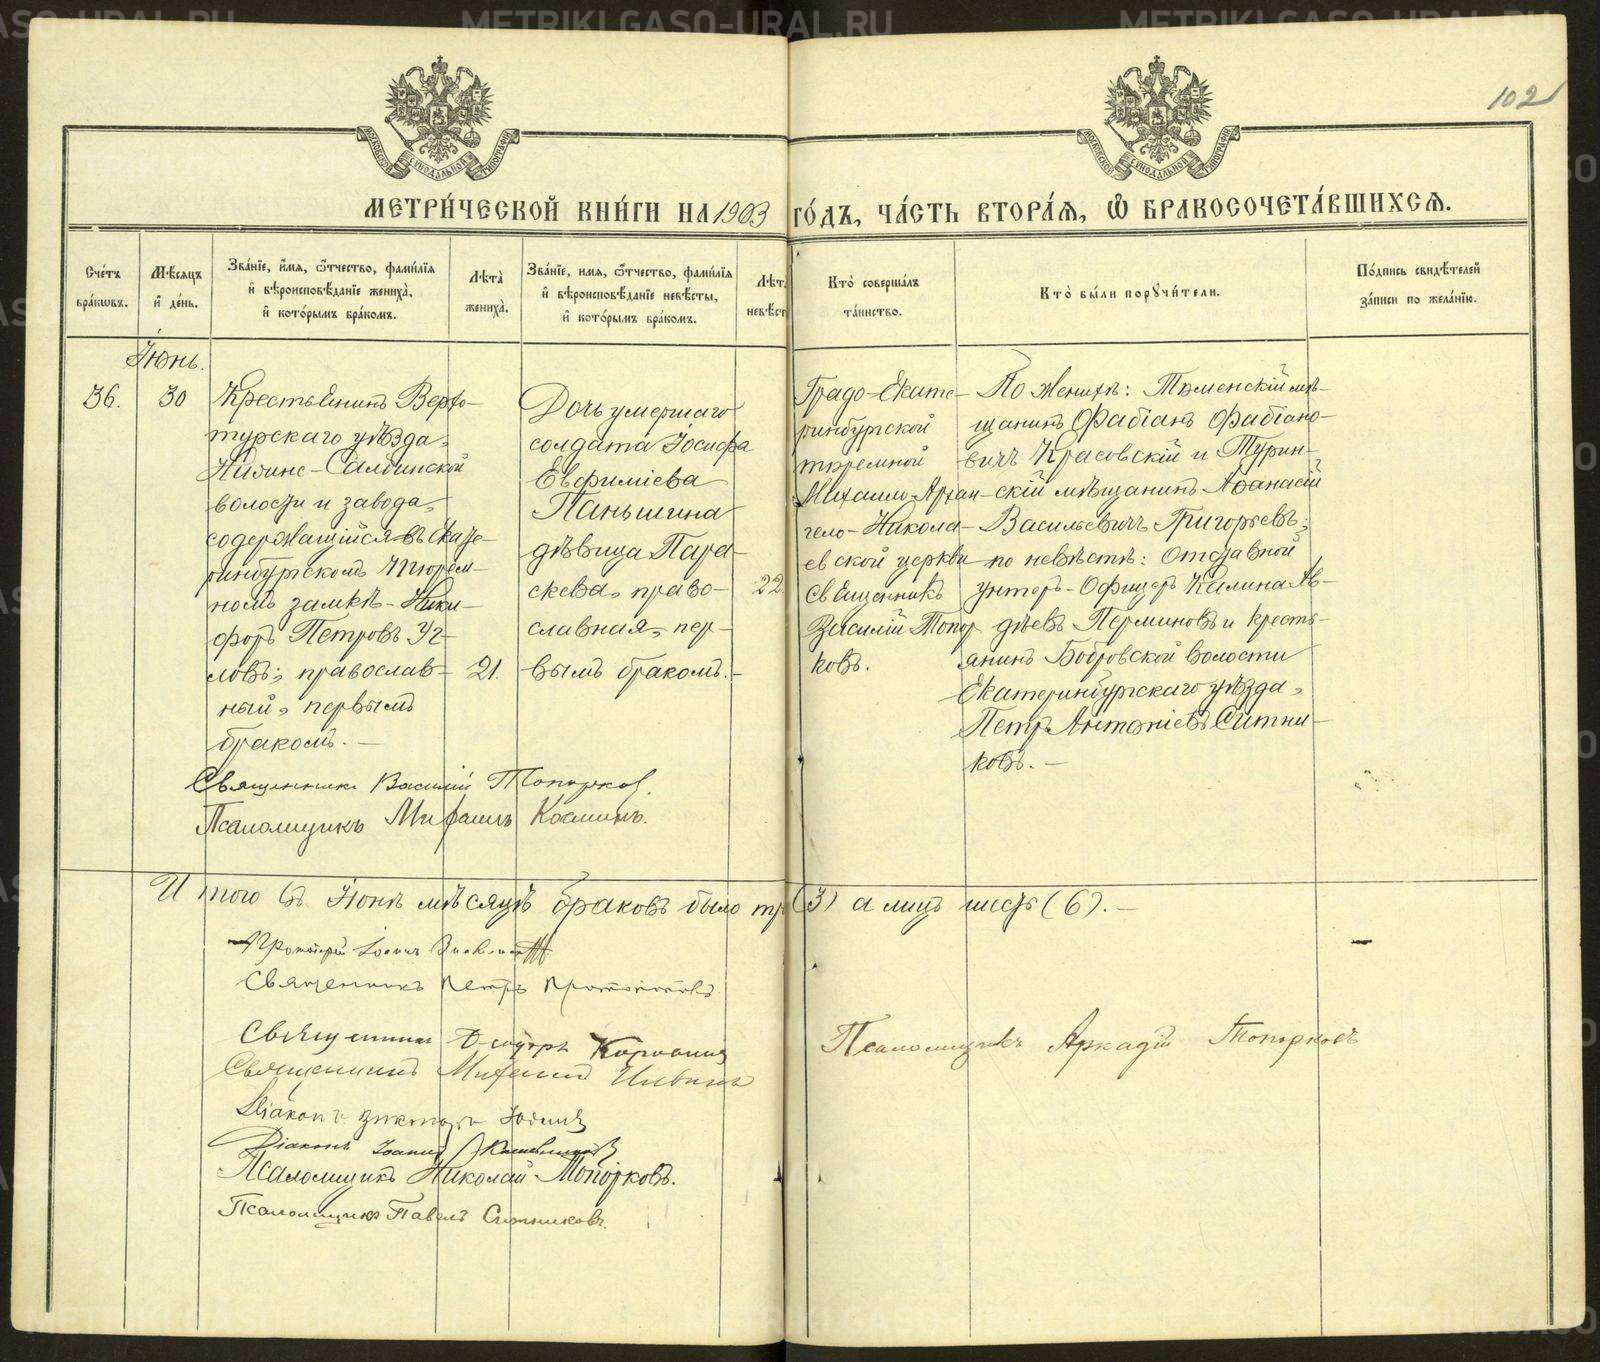 102
МЕТРИ́ЧЕСКОЙ КНИ́ГИ НА 1903 ГО́ДЪ, ЧА́СТЬ ВТОРА́Я, Ѡ БРАКОСОЧЕТА́ВШИХСЯ.
Сче́тъ бра́кωвъ.
Мѣ́сяцъ и҆ де́нь.
Зва́нїе, и҆́мя, ѻ҆́тчество, фами́лїя
и҆ вѣроисповѣ́данїе жениха̀,
и҆ кото́рымъ бра́комъ.
Лѣ́та̀ жениха̀.
Зва́нїе, имя, ѻ҆́тчество, фами́лїя
и҆ вѣроисповѣ́данїе невѣ́сты,
и҆ кото́рымъ бра́комъ.
Лѣ́та невѣ́ст
Кто̀ соверша́лъ та́инство.
Кто̀ бы́ли порꙋчи́тели.
По́дпись свидѣ́телей за́писи по жела́нїю.
Іюнь.
36.
30
Крестьянинъ Верхо-
турскаго уѣзда,
Нижне-Салдинской
волости и завода,
содержащійся въ Екате-
ринбургскомъ тюрем-
номъ замкѣ Ники-
форъ Петровъ Уг-
ловъ, православ-
ный, первымъ
бракомъ. —
21.
Дочь умершаго
солдата Іосифа
Евфиміева
Паньшина
дѣвица Пара-
скева, право-
славная, пер-
вымъ бракомъ. -
22.
Градо-Екате-
ринбургской
тюремной
Михаило-Архан-
гело-Никола-
евской церкви
Священникъ
Василій Топор
ковъ.
По женихѣ: Тюменскій мѣ-
щанинъ Фабіанъ Фабіано-
вичъ Красовскій и Турин-
скій мѣщанинъ Афанасій
Васильевичъ Григорьевъ;
по невѣстѣ: отставной
унтеръ-Офицеръ Калина Ав-
дѣевъ Перминовъ и кресть-
янинъ Бобровской волости
Екатеринбургскаго уѣзда,
Петръ Антоніевъ Ситни-
ковъ. —
Священникъ Василій Топорковъ.
Псаломщикъ Михаилъ Косминъ.
Итого въ Іюнѣ мѣсяцѣ браковъ было тр (3) а лицъ шесть (6). —
Протоіерей Іоаннъ
Священникъ Петръ
Священникъ
Священникъ Михаилъ
Діаконъ
Діаконъ Іоаннъ
Псаломщикъ Николай Топорковъ.
Псаломщикъ Павелъ Ситниковъ.
Псаломщикъ Аркадій Топорковъ
METRIKI.GASO-URAL.RU